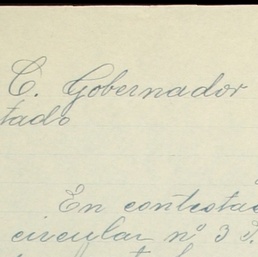 C. Gobernador
tado
En contestac
circular nº 3 S.